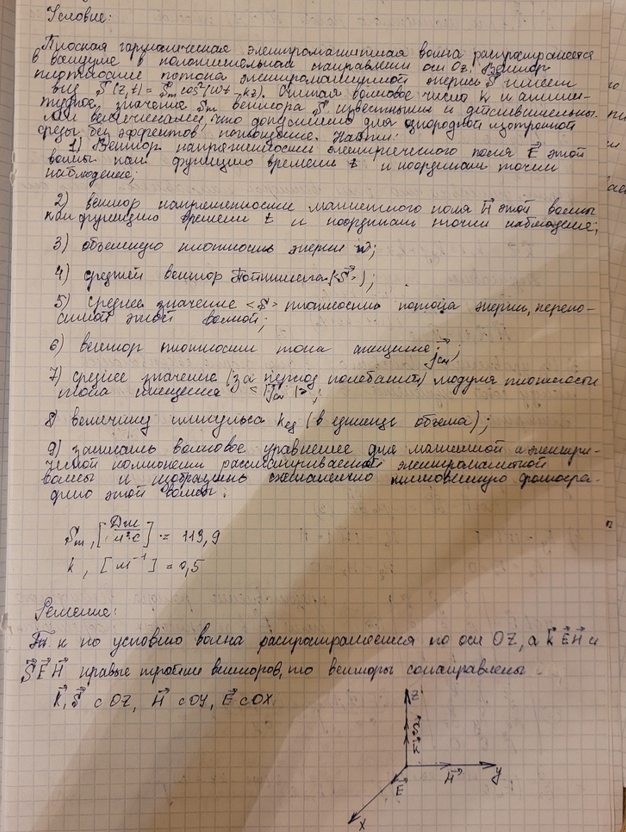 Условие:
Плоская гармоническая электромагнитная волна распространяется
в вакууме в положительном направлении оси OZ. Вектор
плотности потока электромагнитной энергии S⃗ имеет
вид S⃗(z,t) = S⃗m cos²(ωt - kz). Считая волновое число k и амплиту-
тудное значение Sm вектора S⃗ известными и действительны-
ми величинами, что допустимо для однородной изотропной
среды без эффектов поглощения. Найти:
1) Вектор напряженности электрического поля E⃗ этой
волны как функцию времени t и координат точки
наблюдения;
2) вектор напряженности магнитного поля H⃗ этой волны
как функцию времени t и координат точки наблюдения;
3) объемную плотность энергии w;
4) средний вектор Пойтинга (<S⃗>);
5) среднее значение <S> плотности потока энергии, перено-
симой этой волной;
6) вектор плотности тока смещения j⃗см;
7) среднее значение (за период колебаний) модуля плотности
тока смещения <|jсм|>;
8) величину импульса kед (в единице объема);
9) записать волновое уравнение для магнитной и электри-
ческой компоненты рассматриваемой электромагнитной
волны и изобразить схематично мгновенную фотогра-
фию этой волны.
Sm, [Дж/м²·с] = 119,9
k, [м⁻¹] = 0,5
Решение:
Т к по условию волна распространяется по оси OZ, а k⃗ E⃗ H⃗ и
S⃗ E⃗ H⃗ правые тройки векторов, то векторы сонаправлены
k⃗, S⃗ с OZ, H⃗ с OY, E⃗ с OX
Z
E⃗
H⃗
y
x